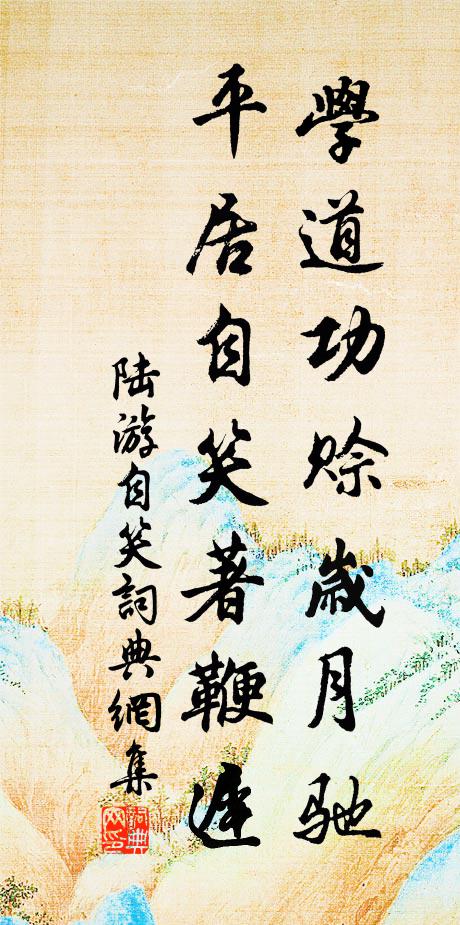 學道功賒歲月馳
平居自笑著鞭遲
陆游自笑詞典網集